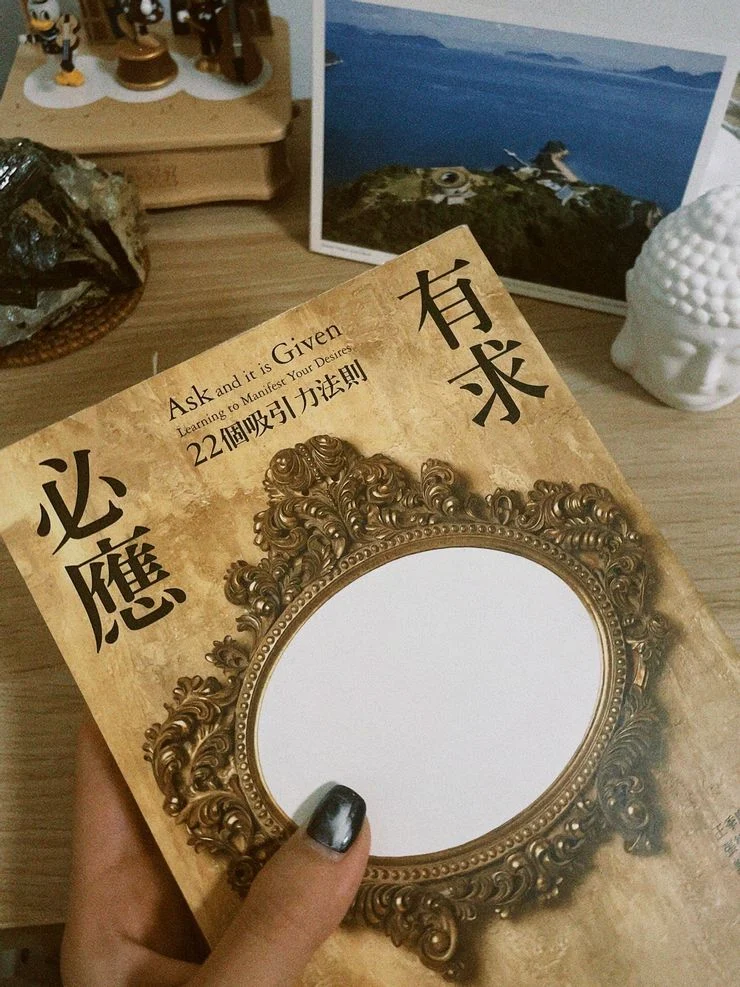 有求
必應
Ask and it is Given
Learning to Manifest Your Desires
22個吸引力法則